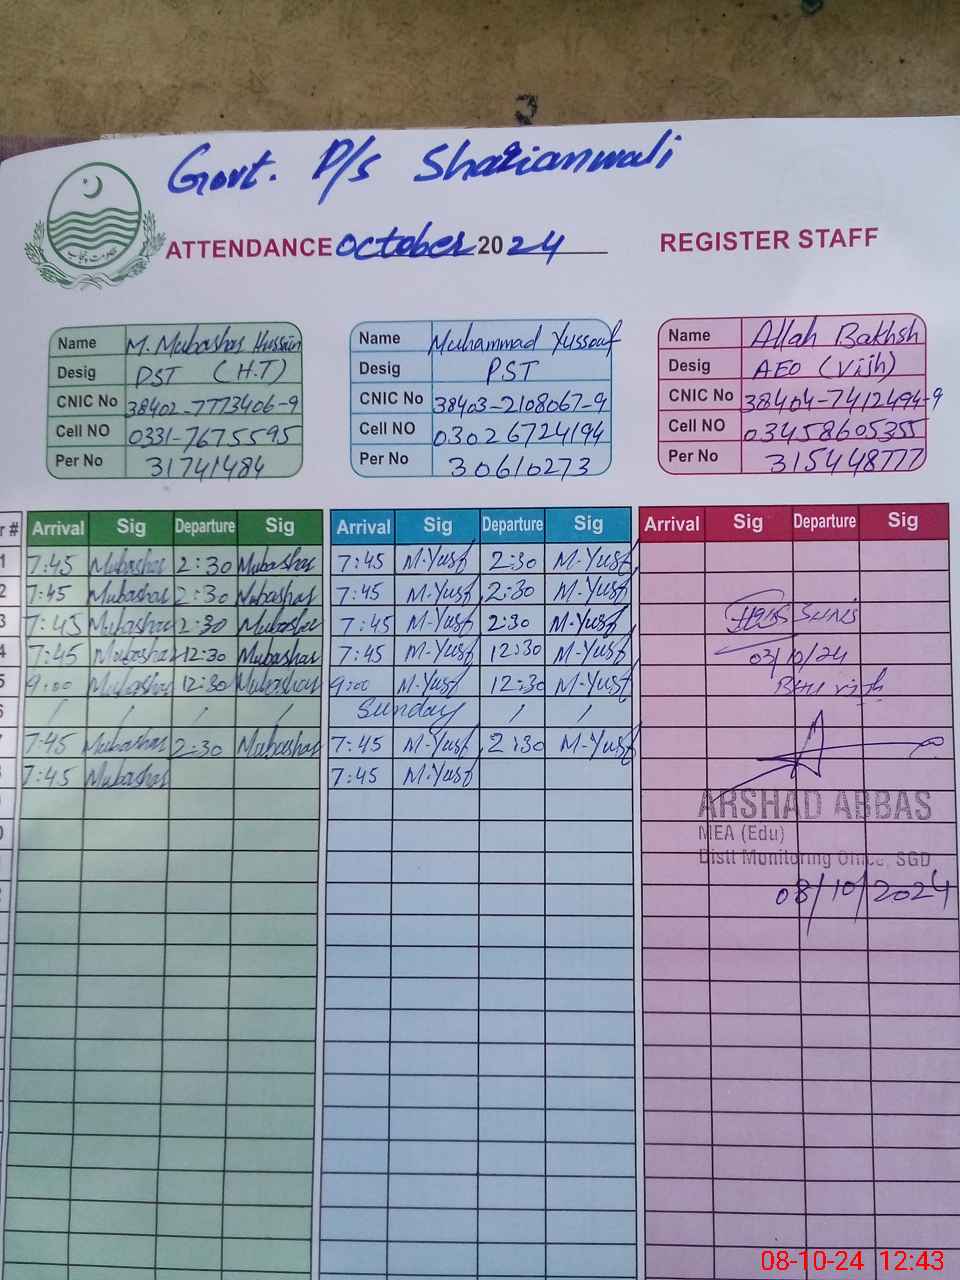 Govt. P/s Sharianwali
حکومت پنجاب
ATTENDANCE October 2024 REGISTER STAFF
Name M. Mubashar Hussain
Desig PST (H.T)
CNIC No 38402-7773406-9
Cell NO 0331-7675595
Per No 31741484
Name Muhammad Yussouf
Desig PST
CNIC No 38403-2108067-9
Cell NO 03026724194
Per No 30610273
Name Allah Bakhsh
Desig AEO (Vijh)
CNIC No 38404-7412494-9
Cell NO 03458605355
Per No 31544877
r # Arrival Sig Departure Sig Arrival Sig Departure Sig Arrival Sig Departure Sig
1 7:45 Mubashar 2:30 Mubashar 7:45 M-Yusf 2:30 M-Yusf
2 7:45 Mubashar 2:30 Mubashar 7:45 M-Yusf 2:30 M-Yusf
3 7:45 Mubashar 2:30 Mubashar 7:45 M-Yusf 2:30 M-Yusf
4 7:45 Mubashar 12:30 Mubashar 7:45 M-Yusf 12:30 M-Yusf
03/10/24
5 9:00 Mubashar 12:30 Mubashar 9:00 M-Yusf 12:30 M-Yusf
6 / / / / Sunday / /
7:45 Mubashar 2:30 Mubashar 7:45 M-Yusf 2:30 M-Yusf
7:45 Mubashar 7:45 M-Yusf
ARSHAD ABBAS
MEA (Edu)
Distt Monitoring Office, SGD
08/10/2024
08-10-24 12:43